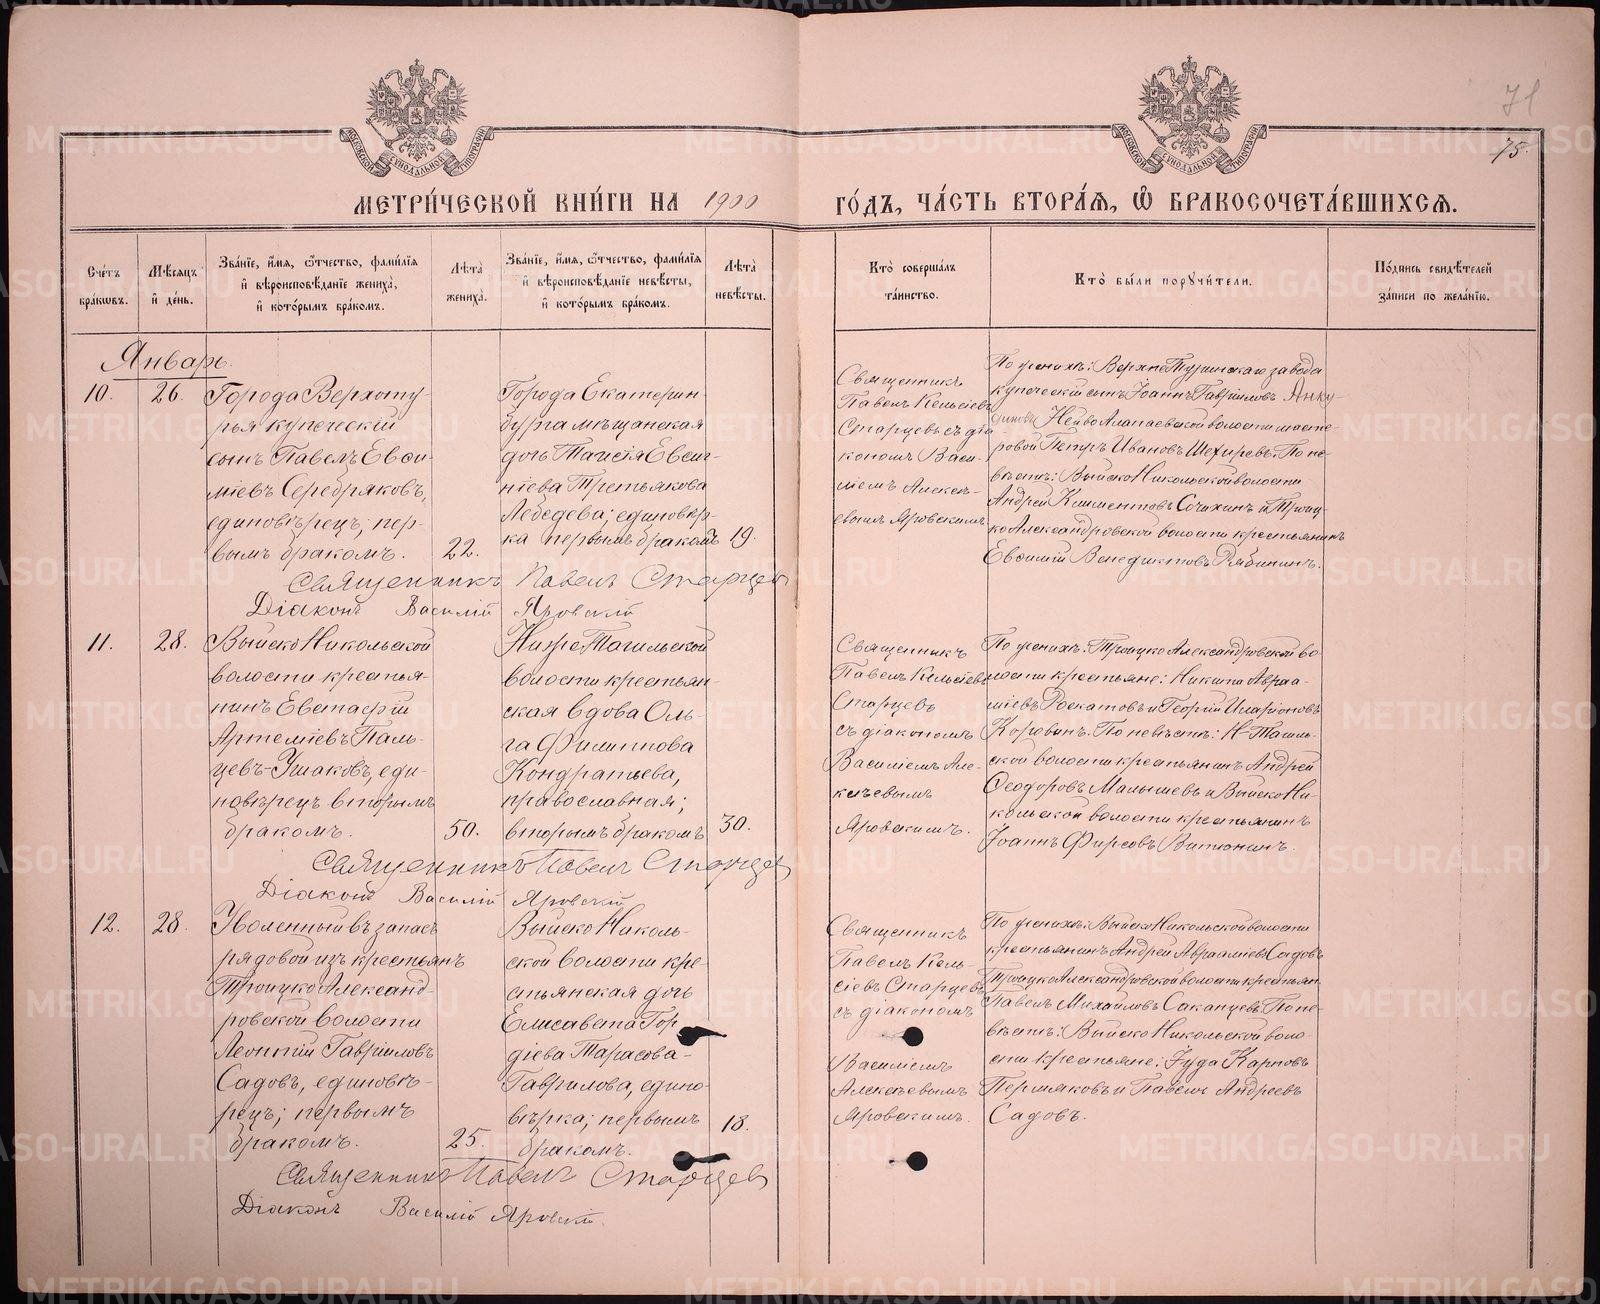 71
75.
МОСКОВСКОЙ СѴНОДАЛЬНОЙ ТИПОГРАФІИ
МОСКОВСКОЙ СѴНОДАЛЬНОЙ ТИПОГРАФІИ
МЕТРИ́ЧЕСКОЙ КНИ́ГИ НА 1900 ГО́ДЪ, ЧА́СТЬ ВТОРА́Я, Ѽ БРАКОСОЧЕТА́ВШИХСЯ.
Сче́тъ бра́кѡвъ.
Мѣ́сяцъ и҆ де́нь.
Зва́нїе, и҆́мя, ѻ҆́тчество, фами́лїя и҆ вѣроисповѣ́данїе жениха̀, и҆ кото́рымъ бра́комъ.
Лѣ́та жениха̀.
Зва́нїе, и҆́мя, ѻ҆́тчество, фами́лїя и҆ вѣроисповѣ́данїе невѣ́сты, и҆ кото́рымъ бра́комъ.
Лѣ́та невѣ́сты.
Кто̀ соверша́лъ та́инство.
Кто̀ бы́ли порꙋчи́тели.
По́дпись свидѣ́телей за́писи по жела́нїю.
Январь.
10.
26.
Города Верхоту-
рья купеческій
сынъ Павелъ Евѳи-
міевъ Серебряковъ,
единовѣрецъ, пер-
вымъ бракомъ.
22.
Города Екатерин-
бурга мѣщанская
дочь Таисія Евге-
ніева Третьякова
Лебедева; единовѣр-
ка первымъ бракомъ
19.
Священникъ
Павелъ Кельсіевъ
Старцевъ съ діа
кономъ Васи-
ліемъ Алексѣ-
евымъ Яровскимъ
По женихѣ: ВерхнеТуринскаго завода
купеческій сынъ Іоаннъ Гавріиловъ Анку-
диновъ НейвоАлапаевской волости масте-
ровой Петръ Ивановъ Шехиревъ. По не-
вѣстѣ: ВыйскоНикольской волости
Андрей Климентовъ Сочихинъ и Троиц-
коАлександровской волости крестьянинъ
Евѳимій Венедиктовъ Рябининъ.
Священникъ Павелъ Старцевъ
Діаконъ Василій Яровскій
11.
28.
ВыйскоНикольской
волости крестья-
нинъ Евстафій
Артеміевъ Паль-
цевъ-Ушаковъ, еди-
новѣрецъ вторымъ
бракомъ.
50.
НижнеТагильской
волости крестьян-
ская вдова Оль-
га Филиппова
Кондратьева,
православная;
вторымъ бракомъ
30.
Священникъ
Павелъ Кельсіевъ
Старцевъ
съ діакономъ
Василіемъ Але-
ксѣевымъ
Яровскимъ.
По женихѣ: ТроицкоАлександровской во
лости крестьяне: Никита Авраа-
міевъ Роскатовъ и Георгій Иларіоновъ
Коровинъ. По невѣстѣ: Н-Тагиль-
ской волости крестьянинъ Андрей
Ѳеодоровъ Малышевъ и ВыйскоНи-
кольской волости крестьянинъ
Іоаннъ Фирсовъ Витюнинъ.
Священникъ Павелъ Старцевъ
Діаконъ Василій Яровскій
12.
28.
Уволенный въ запасъ
рядовой изъ крестьянъ
ТроицкоАлександ-
ровской волости
Леонтій Гавріиловъ
Садовъ, единовѣ-
рецъ; первымъ
бракомъ.
25.
ВыйскоНиколь-
ской волости кре-
стьянская дочь
Елисавета Гор
діева Тарасова-
Гаврилова, едино-
вѣрка; первымъ
бракомъ.
18.
Священникъ
Павелъ Кель-
сіевъ Старцевъ
съ діакономъ
Василіемъ
Алексѣевымъ
Яровскимъ.
По женихѣ: ВыйскоНикольской волости
крестьянинъ Андрей Авраамiевъ Садовъ
ТроицкоАлександровской волости крестьян.
Павелъ Михайловъ Саканцевъ. По не-
вѣстѣ: ВыйскоНикольской воло-
сти крестьяне: Іуда Карповъ
Пермяковъ и Павелъ Андреевъ
Садовъ.
Священникъ Павелъ Старцевъ
Діаконъ Василій Яровскій.
METRIKI.GASO-URAL.RU